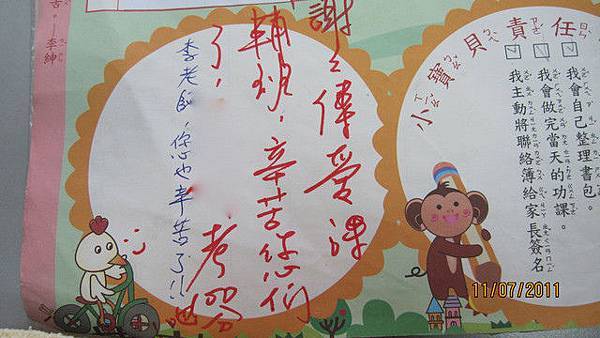 小寶貝責任
我會自己整理書包。
我會做完當天的功課。
我主動將聯絡簿給家長簽名
謝々偉愛課
輔班,辛苦你們
了,
李老師,您也辛苦了!!
苦。─李紳
11/07/2011